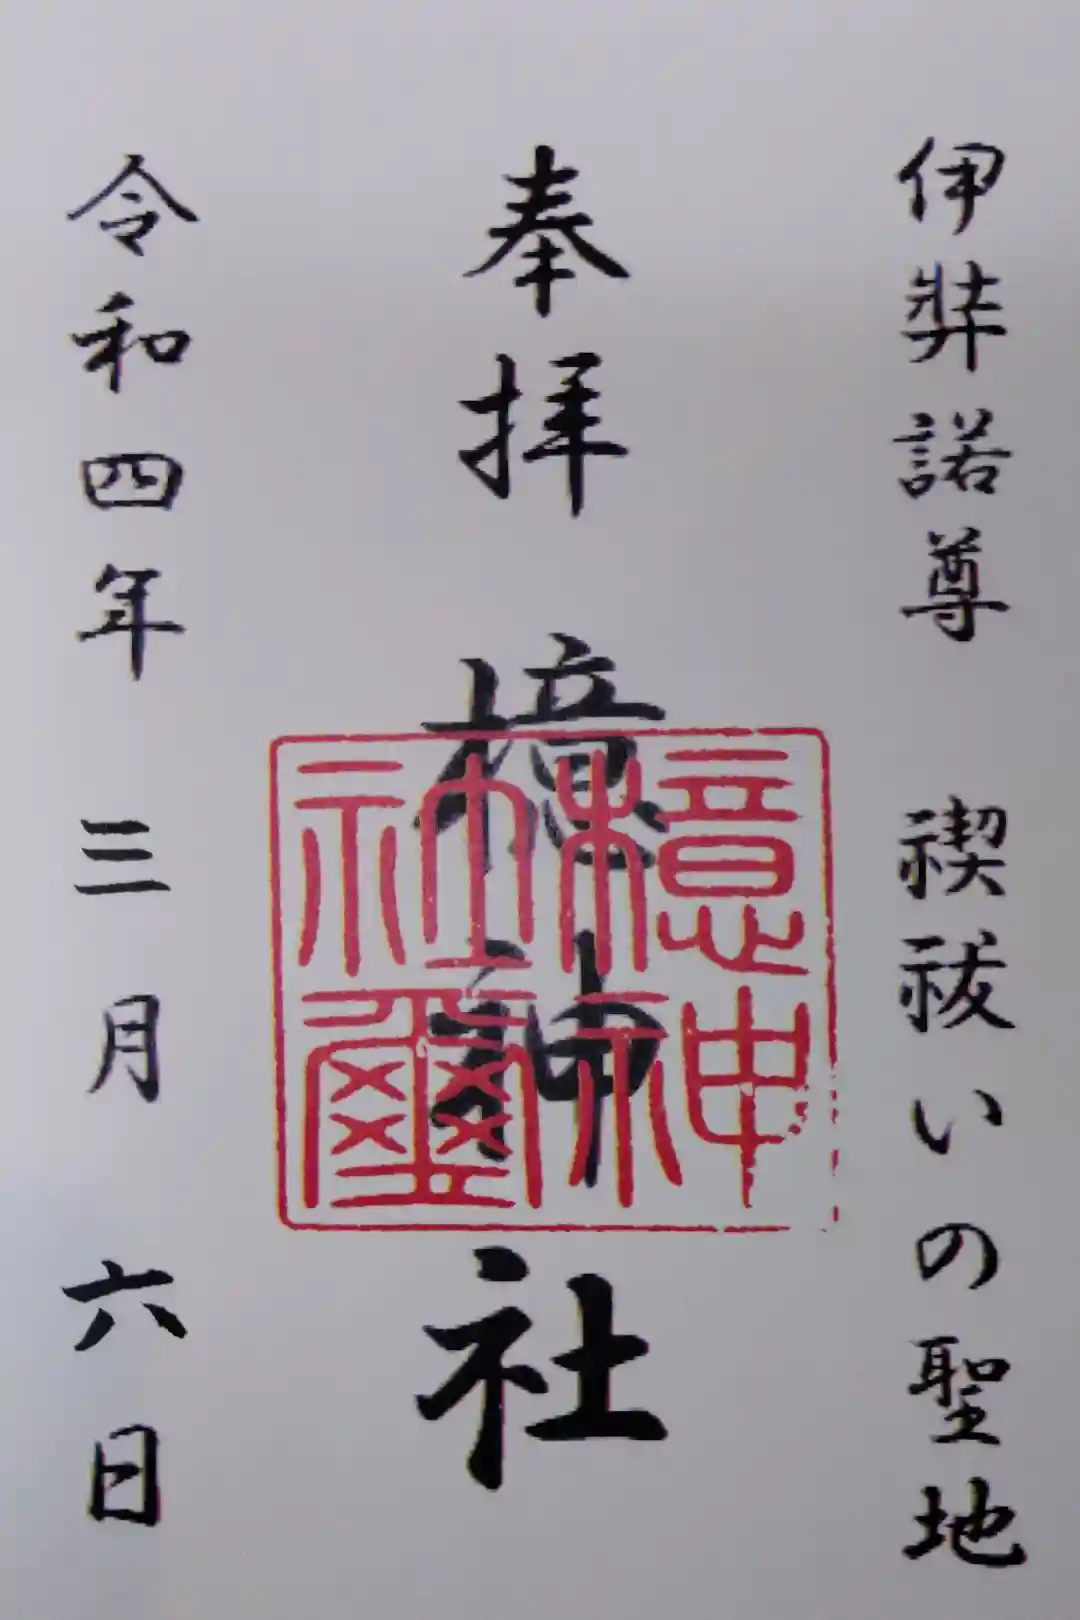 伊弉諾尊 禊祓いの聖地
奉拝 檍神社
令和四年 三月 六日
檍神社璽